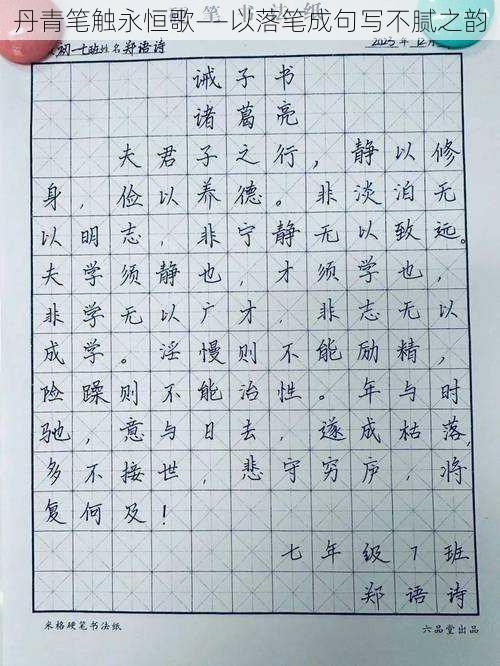 丹青笔触永恒歌——以落笔成句写不腻之韵
初一十班姓名郑语诗
2023年12月
诫子书
诸葛亮
夫君子之行，静以修
身，俭以养德。非淡泊无
以明志，非宁静无以致远。
夫学须静也，才须学也，
非学无以广才，非志无以
成学。淫慢则不能励精，
险躁则不能治性。年与时
驰，意与日去，遂成枯落，
多不接世，悲守穷庐，将
复何及！
七年级7班
郑语诗
米格硬笔书法纸
六品堂出品